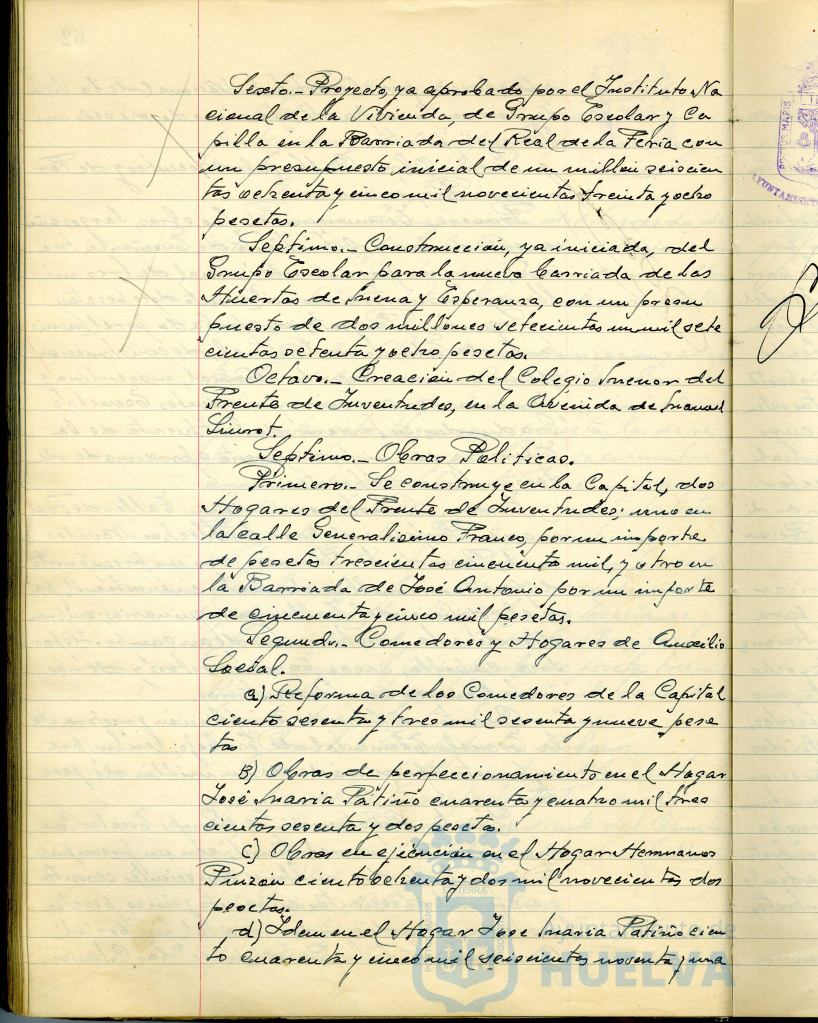 Sexto.- Proyecto, ya aprobado por el Instituto Na
cional de la Vivienda, de Grupo Escolar y Ca
pilla en la Barriada del Real de la Feria con
un presupuesto inicial de un millon seiscien
tas ochenta y cinco mil novecientas treinta y ocho
pesetas.
Septimo.- Construcción, ya iniciada, del
Grupo Escolar para la nueva barriada de las
Huertas de Mena y Esperanza, con un presu
puesto de dos millones setecientas un mil sete
cientas setenta y ocho pesetas.
Octavo.- Creación del Colegio Menor del
Frente de Juventudes, en la Avenida de Manuel
Siurot.
Septimo.- Obras Politicas.
Primero.- Se construye en la Capital, dos
Hogares del Frente de Juventudes; uno en
la calle Generalisimo Franco, por un importe
de pesetas trescientas cincuenta mil, y otro en
la Barriada de José Antonio por un importe
de cincuenta y cinco mil pesetas.
Segundo.- Comedores y Hogares de Auxilio
Social.
a) Reforma de los Comedores de la Capital
ciento sesenta y tres mil sesenta y nueve pese
tas
B) Obras de perfeccionamiento en el Hogar
José Maria Patiño cuarenta y cuatro mil tres
cientas sesenta y dos pesetas.
c) Obras en ejecución en el Hogar Hermanos
Pinzón ciento ochenta y dos mil novecientas dos
pesetas.
d) Idem en el Hogar Jose Maria Patiño cien
to cuarenta y cinco mil seiscientas noventa y una
HUELVA